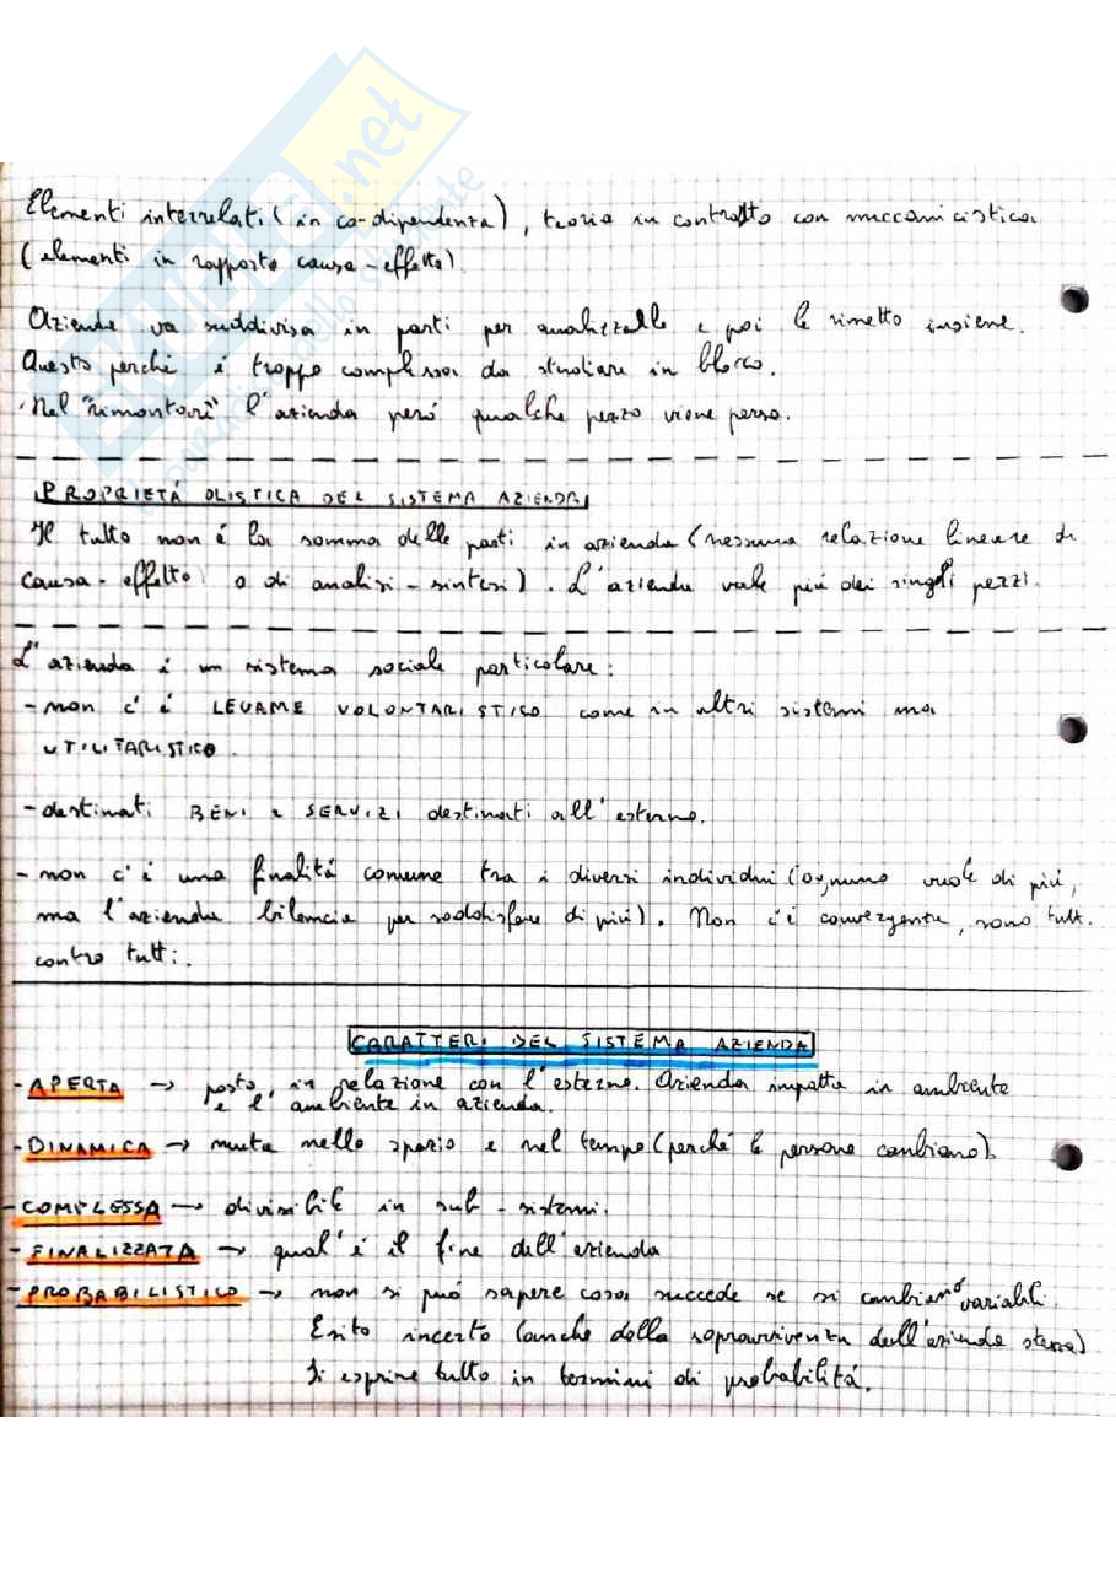 Elementi interrelati (in co-dipendenza), teoria in contrasto con meccanicistica
(elementi in rapporto causa-effetto)
Azienda va suddivisa in parti per analizzalle e poi le rimetto insieme.
Questo perché è troppo complessa da studiare in blocco.
Nel "rimontare" l'azienda però qualche pezzo viene perso.
PROPRIETÁ OLISTICA DEL SISTEMA AZIENDA
Il tutto non é la somma delle parti in azienda (nessuna relazione lineare di
causa-effetto o di analisi-sintesi). L'azienda vale più dei singoli pezzi.
L'azienda è un sistema sociale particolare:
- non c'è LEGAME VOLONTARISTICO come in altri sistemi ma
UTILITARISTICO.
- destinati BENI e SERVIZI destinati all'esterno.
- non c'è una finalitá comune tra i diversi individui (ognuno vuole di più,
ma l'azienda bilancia per soddisfare di più). Non c'è convergenza, sono tutti
contro tutti.
CARATTERI DEL SISTEMA AZIENDA
- APERTA → posto, in relazione con l'esterno. Azienda impatta in ambiente
e l'ambiente in azienda.
- DINAMICA → muta nello spazio e nel tempo (perché le persone cambiano).
- COMPLESSA → divisibile in sub-sistemi.
- FINALIZZATA → qual'è il fine dell'azienda
- PROBABILISTICO → non si può sapere cosa succede se si cambiano variabili.
Esito incerto (anche della sopravvivenza dell'azienda stessa)
Si esprime tutto in termini di probabilitá.
EXTRA.net